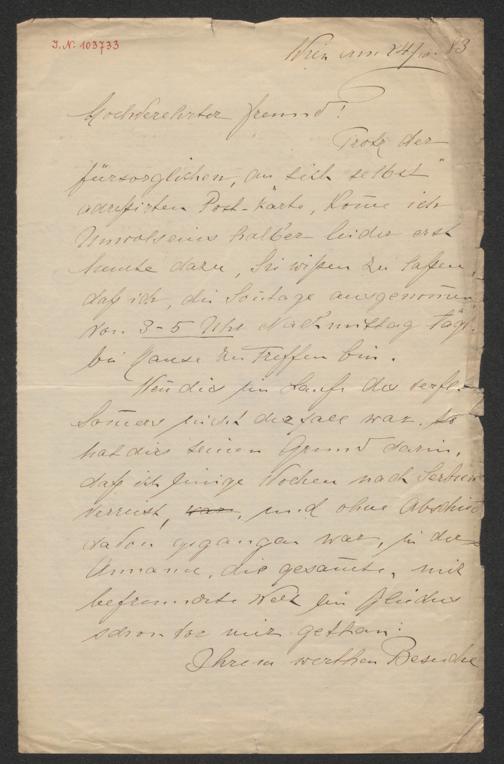 J. N. 103733
Wien am 24/10. 83
Hochverehrter Freund!
Trotz der
fürsorglichen, „an sich selbst"
adressirten Post-Karte, kom̄e ich
Unwolseins halber leider erst
heute dazu, Sie wißen zu laßen,
daß ich, die Son̄tage ausgenom̄en,
von 3-5 Uhr Nachmittag tägl.
bei Hause zu treffen bin.
Wen̄ dies im Laufe des verfl.
Som̄ers nicht der Fall war, so
hat dies seinen Grund darin,
daß ich einige Wochen nach Serbien
verreist, war, und ohne Abschied
davon gegangen war, in der
Annahme, die gesam̄te, mir
befreundete Welt ein Gleiches
schon vor mir gethan:
Ihrem werthen Besuche